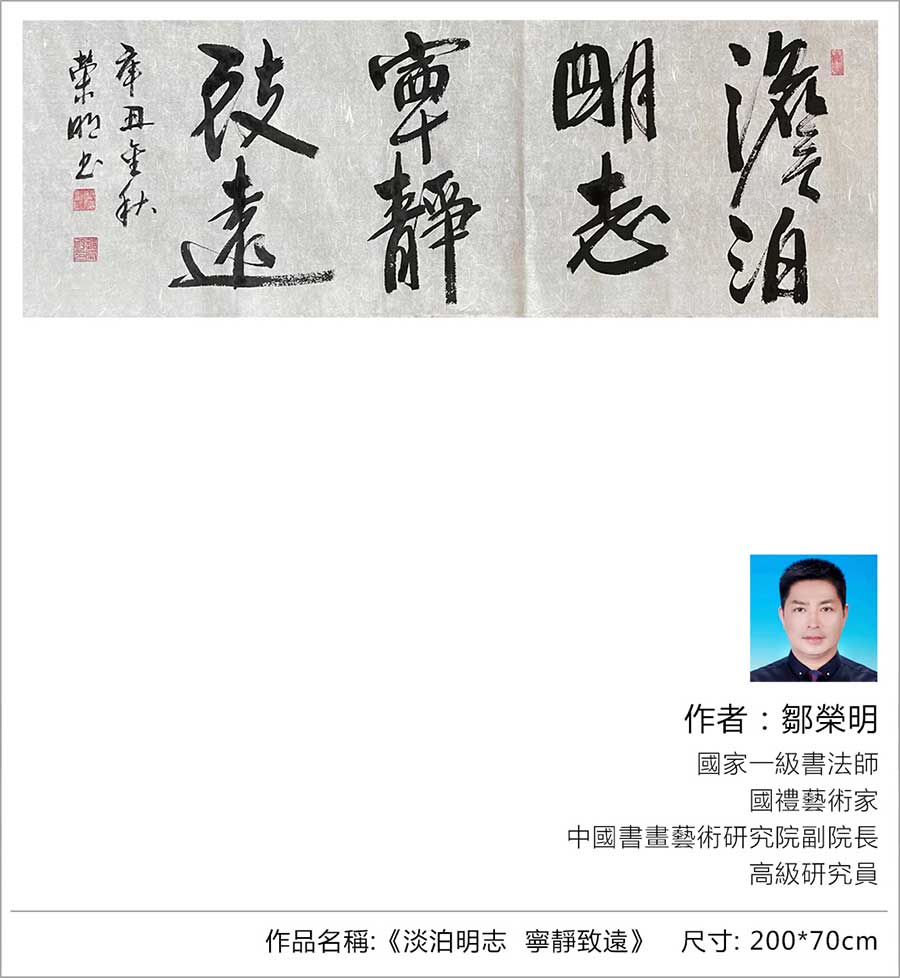 澹泊
明志
寧靜
致遠
辛丑金秋
榮明书
作者：鄒榮明
國家一級書法師
國禮藝術家
中國書畫藝術研究院副院長
高級研究員
作品名稱:《淡泊明志 寧靜致遠》 尺寸: 200*70cm